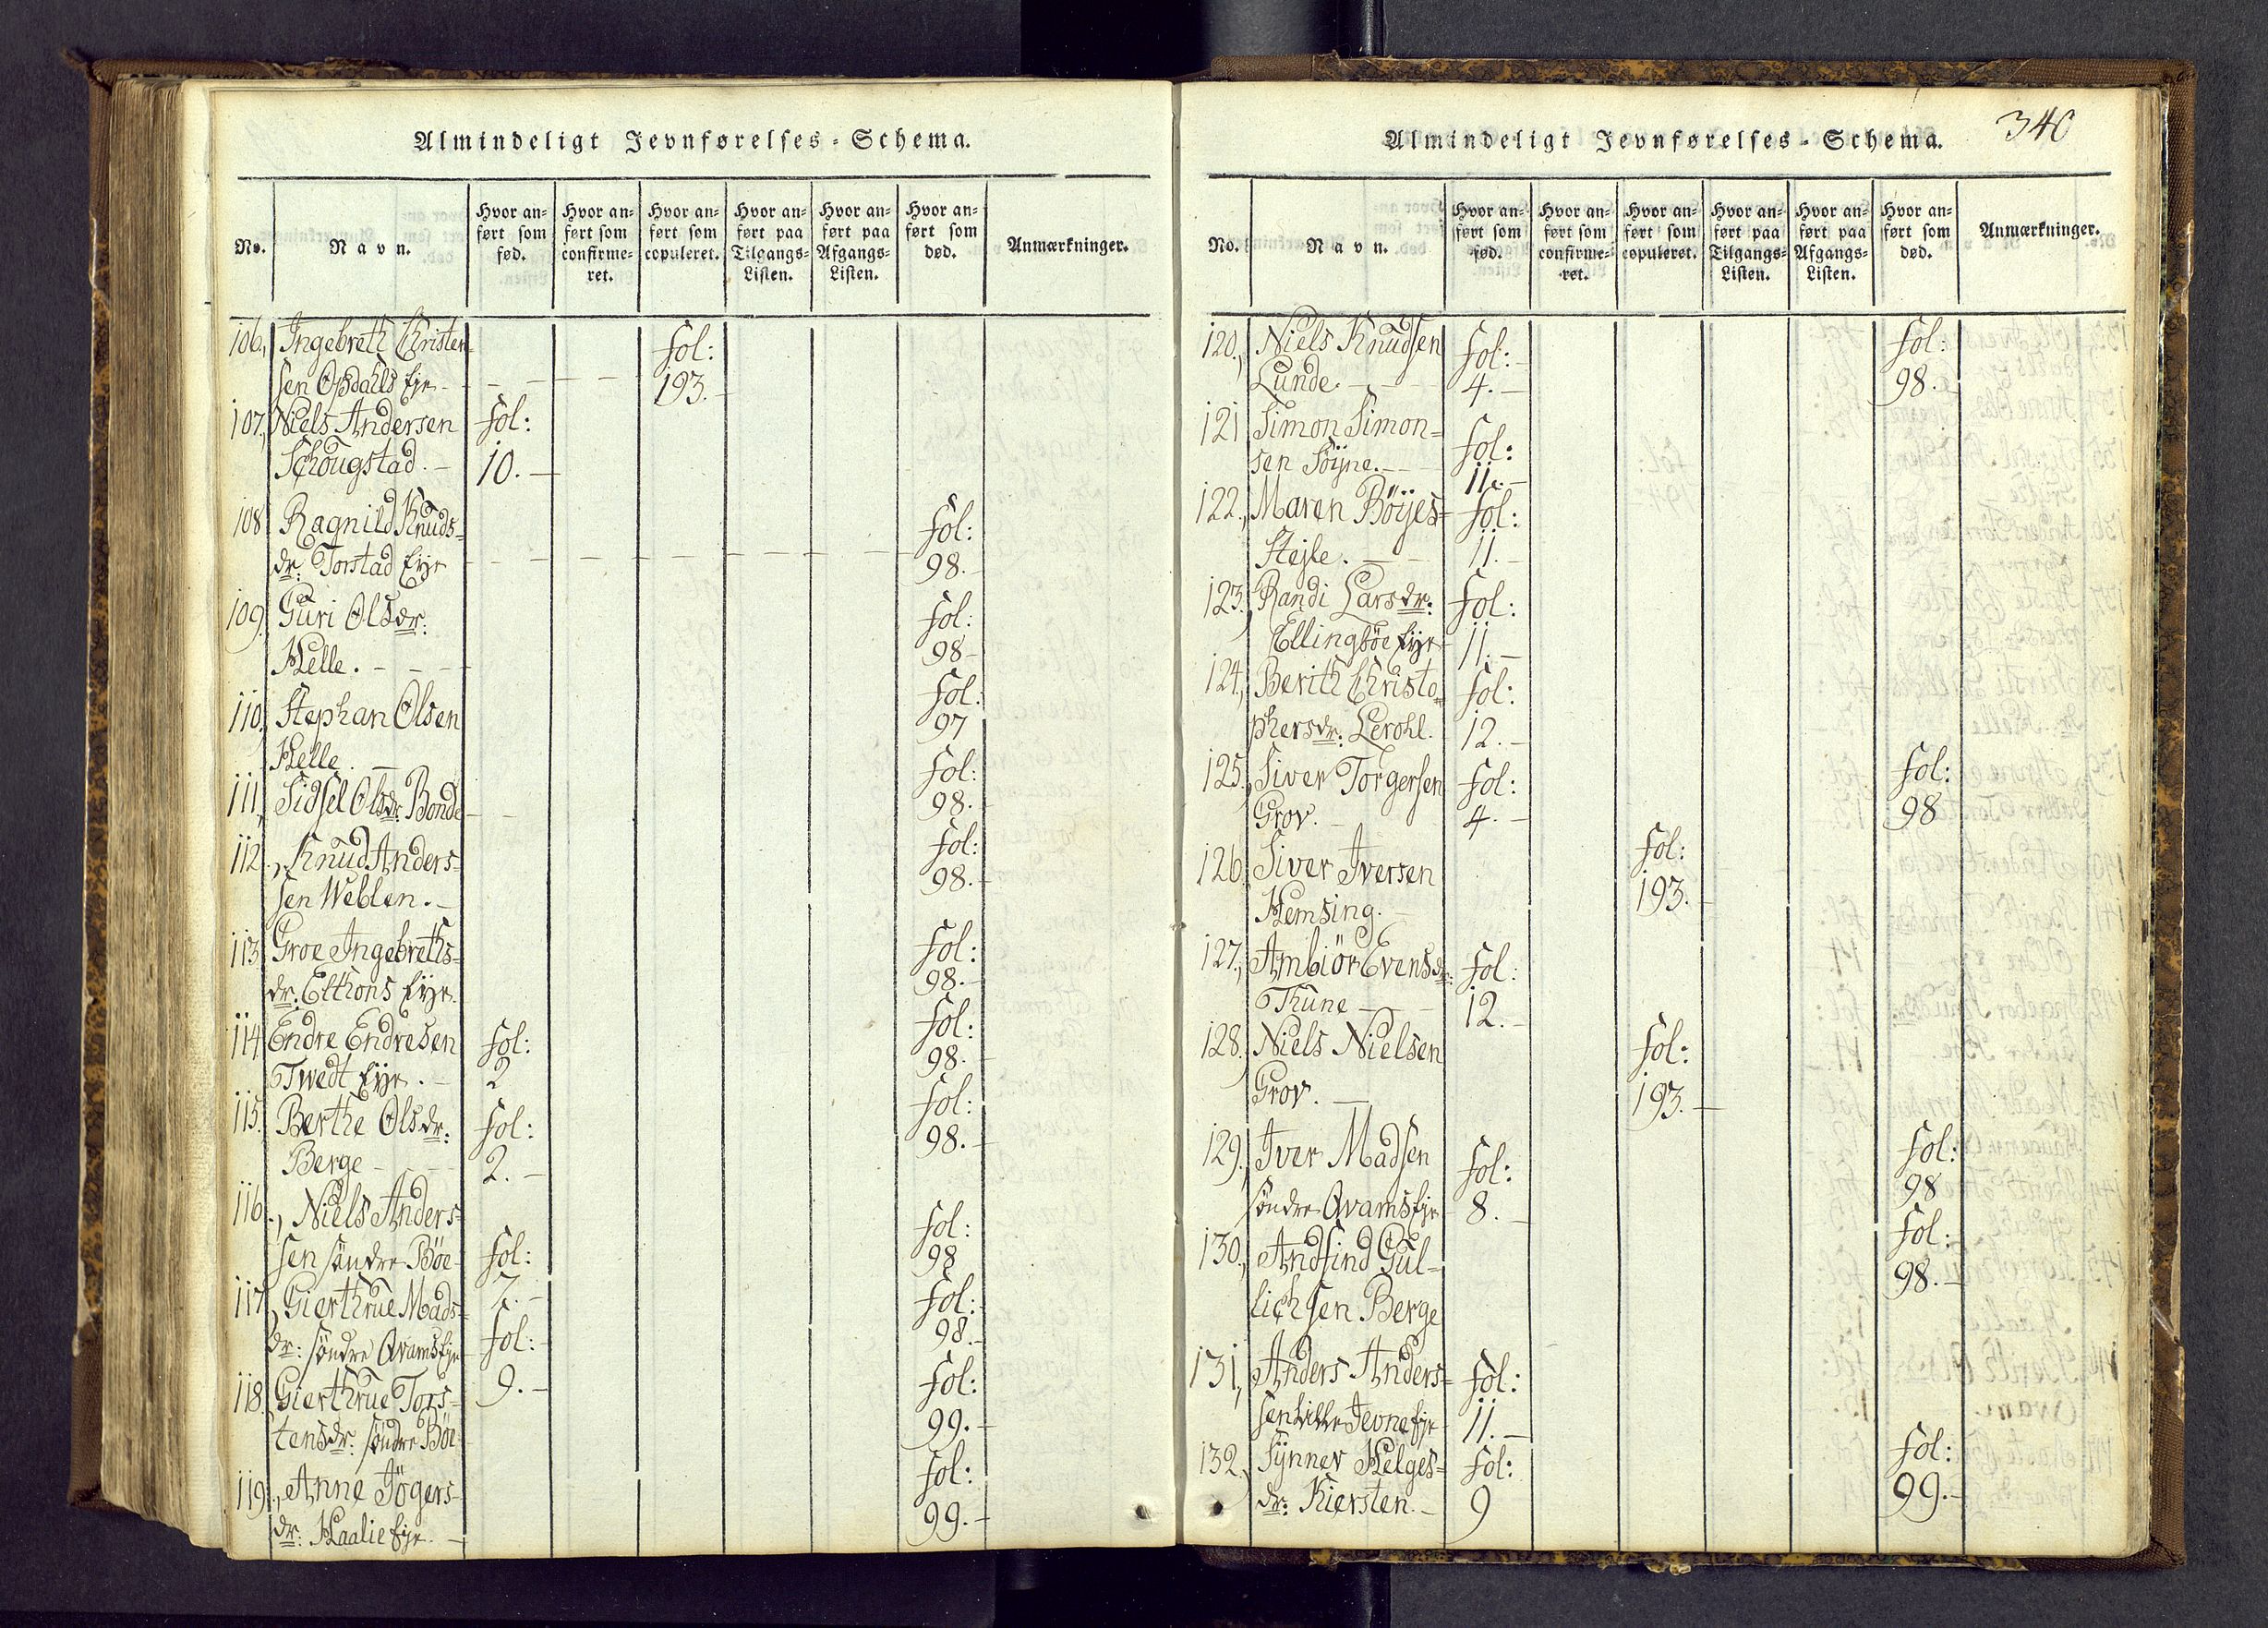 Almindeligt Jevnførelses-Schema.
No.
Navn.
Hvor an-
ført som
fød.
Hvor an-
ført som
confirme-
ret.
Hvor an-
ført som
copuleret.
Hvor an-
ført paa
Tilgangs-
Listen.
Hvor an-
ført paa
Afgangs-
Listen.
Hvor an-
ført som
død.
Anmærkninger.
106., Ingebreth Christen-
sen Opdahls Eje - fol: 193.
107., Niels Andersen fol:
Schougstad. - 10. -
108 Ragnild Knuds- fol:
dr: Torstad Eje 98.
109. Guri Olsdr: fol:
Helle. - 98 -
110. Stephan Olsen fol:
Helle. - 97
111., Sidsel Olsdr: Bonde fol: 98.
112., Knud Anders- fol:
sen Weblen. - 98. -
113. Groe Ingebreths- fol:
dr: Elthons Eje. 98. -
114. Endre Endresen fol: fol:
Twedt Eje. - 2 98. -
115. Berthe Olsdr: fol: fol:
Berge - 2. - 98. -
116., Niels Anders- fol:
sen søndre Böe - fol: 7. - 98
117., Gierthrue Mads- fol:
dr: søndre Qvams Eje fol: 9. - 98. -
118. Gierthrue Tors- fol:
tensdr: søndre Böe 99. -
119., Anne Jögers- fol:
dr: Haalie Eje. - 99. -
340
Almindeligt Jevnførelses-Schema.
No.
Navn.
Hvor an-
ført som
fød.
Hvor an-
ført som
confirme-
ret.
Hvor an-
ført som
copuleret.
Hvor an-
ført paa
Tilgangs-
Listen.
Hvor an-
ført paa
Afgangs-
Listen.
Hvor an-
ført som
død.
Anmærkninger.
120., Niels Knudsen fol: - fol:
Lunde. - 4. - 98. -
121 Simon Simon- fol:
sen Söyne. - 11. -
122., Maren Böijes- fol:
Stejle. - 11. -
123. Randi Larsdr: fol:
Ellingböe Eje 11. -
124., Berith Christo- fol:
phersdr: Lerohl. 12. -
125., Siver Torgersen fol: fol:
Grov. - 4. - 98
126. Siver Iversen fol:
Hemsing. - 193. -
127., Ambiör Evensdr: fol:
Thune - 12. -
128. Niels Nielsen fol:
Grov. - 193. -
129., Iver Madsen fol: fol:
søndre Qvams Eje 8. - 98
130., Andfind Gul- fol:
lichsen Berge 98. -
131, Anders Anders- fol:
sen Lille Jevne Eje 11. -
132., Synnev Helges- fol: fol:
dr: Kiersten. - 9 99. -